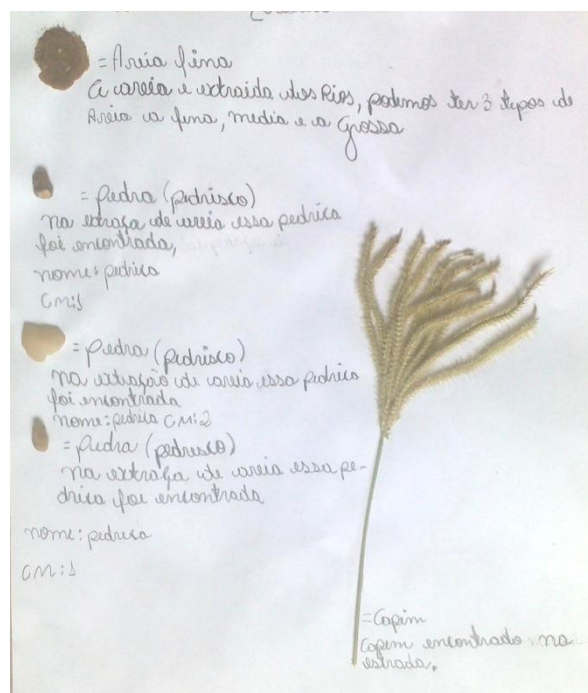 = Areia fina
A areia e extraida dos Rios, podemos ter 3 tipos de
Areia a fina, media e a Grossa
= pedra (pedrisco)
na extraça de areia essa pedrica
foi encontrada,
nome: pedrica
CM:1
= piedra (pedrisco)
na extração de areia essa pedrica
foi encontrada
nome: pedrica CM:2
= pedra (pedresco)
na extraça de areia essa pe-
drica foi encontrada
nome: pedrica
CM:1
= Capim
Capim encontrado na
estrada.